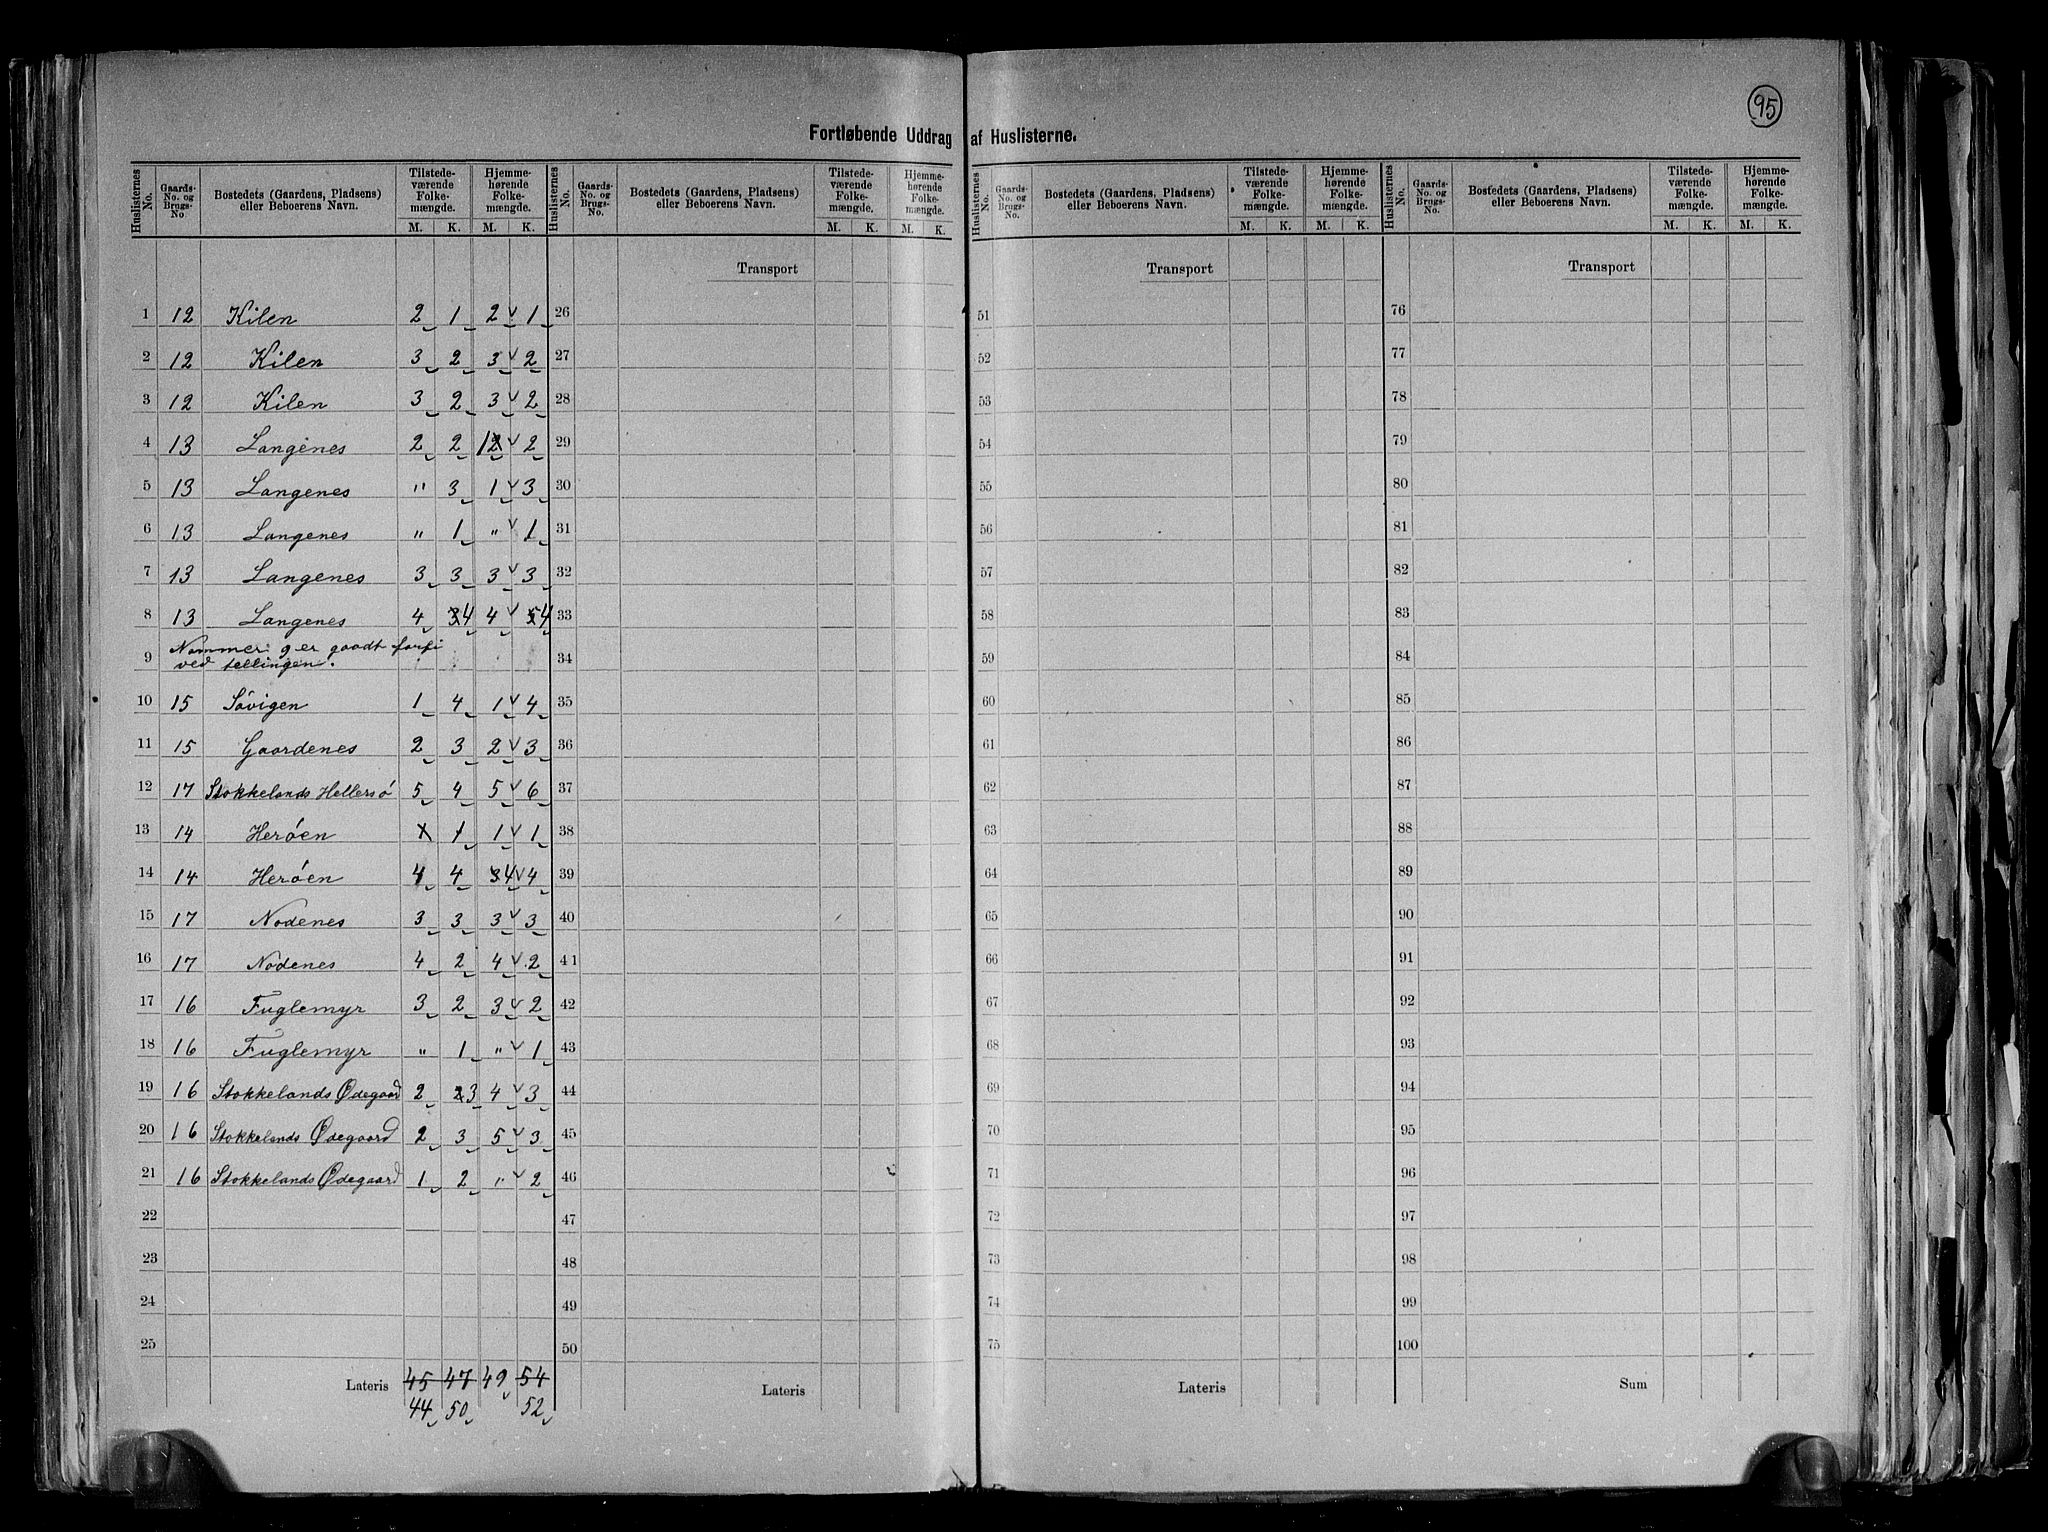 95
Fortløbende Uddrag af Huslisterne.
Huslisternes No. | Gaards-No. og Brugs-No. | Bostedets (Gaardens, Pladsens) eller Beboerens Navn. | Tilstedeværende Folkemængde. M. K. | Hjemmehørende Folkemængde. M. K.
1 12 Kilen 2 1 2 1
2 12 Kilen 3 2 3 2
3 12 Kilen 3 2 3 2
4 13 Langenes 2 2 1 2 2
5 13 Langenes " 3 1 3
6 13 Langenes " 1 " 1
7 13 Langenes 3 3 3 3
8 13 Langenes 4 3 4 4 5 4
9 Nommer 9 er gaadt forfi
ved tellingen.
10 15 Søvigen 1 4 1 4
11 15 Gaardenes 2 3 2 3
12 17 Stokkelands Hellersø 5 4 5 6
13 14 Herøen 1 1 1 1
14 14 Herøen 4 4 3 4 4
15 17 Nodenes 3 3 3 3
16 17 Nodenes 4 2 4 2
17 16 Fuglemyr 3 2 3 2
18 16 Fuglemyr " 1 " 1
19 16 Stokkelands Ødegaard 2 2 3 4 3
20 16 Stokkelands Ødegaard 2 3 5 3
21 16 Stokkelands Ødegaard 1 2 " 2
22
23
24
25
Lateris 45 47 49 54
44 50 52
Huslisternes No. | Gaards-No. og Brugs-No. | Bostedets (Gaardens, Pladsens) eller Beboerens Navn. | Tilstedeværende Folkemængde. M. K. | Hjemmehørende Folkemængde. M. K.
Transport
26
27
28
29
30
31
32
33
34
35
36
37
38
39
40
41
42
43
44
45
46
47
48
49
50
Lateris
Huslisternes No. | Gaards-No. og Brugs-No. | Bostedets (Gaardens, Pladsens) eller Beboerens Navn. | Tilstedeværende Folkemængde. M. K. | Hjemmehørende Folkemængde. M. K.
Transport
51
52
53
54
55
56
57
58
59
60
61
62
63
64
65
66
67
68
69
70
71
72
73
74
75
Lateris
Huslisternes No. | Gaards-No. og Brugs-No. | Bostedets (Gaardens, Pladsens) eller Beboerens Navn. | Tilstedeværende Folkemængde. M. K. | Hjemmehørende Folkemængde. M. K.
Transport
76
77
78
79
80
81
82
83
84
85
86
87
88
89
90
91
92
93
94
95
96
97
98
99
100
Sum